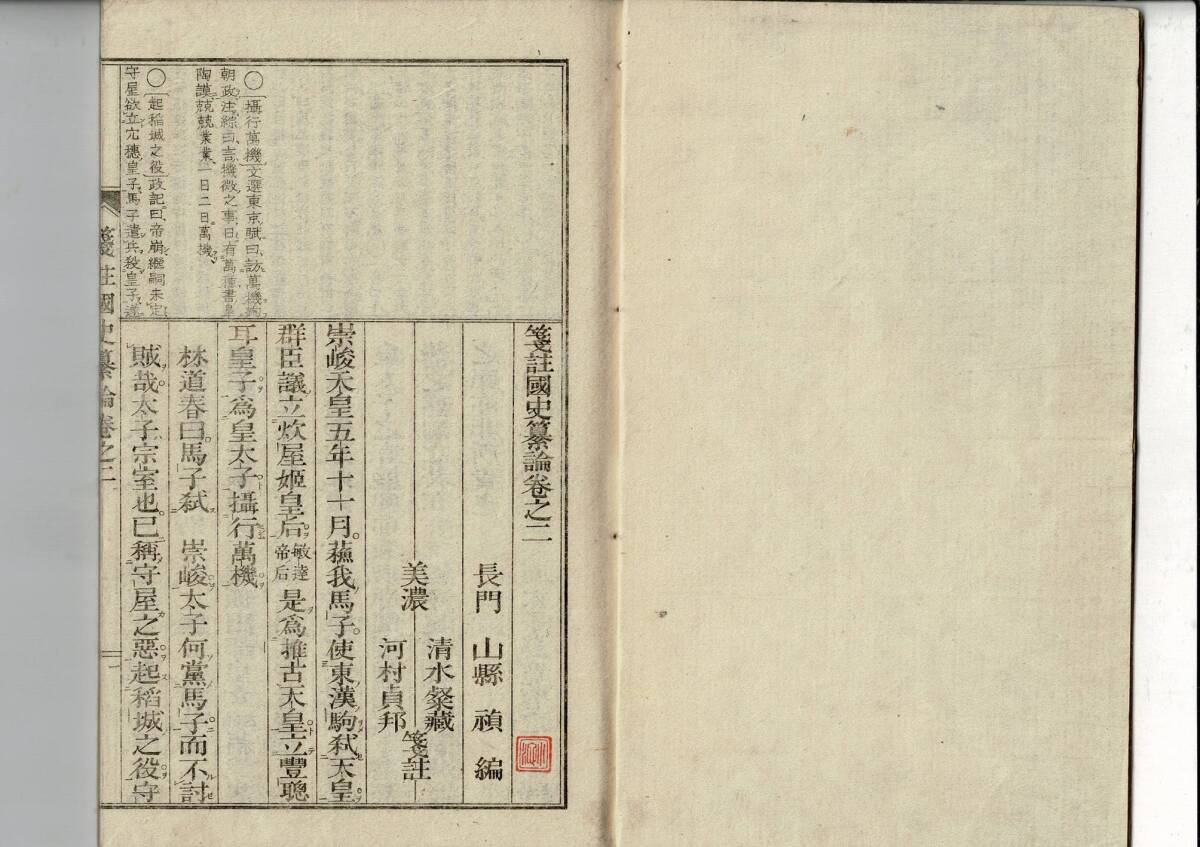 箋註國史纂論卷之二
長門 山縣 禎 編
美濃 清水粲藏
河村貞邦 箋註
崇峻天皇五年十一月。蘇我馬子。使東漢駒弑天皇。
群臣議立炊屋姬皇后。敏達帝后是爲推古天皇。立豐聰
耳皇子。爲皇太子。攝行萬機。
林道春曰。馬子弑 崇峻。太子何黨馬子而不討
賊哉。太子宗室也。已稱守屋之惡。起稻城之役。守
〇攝行萬機文選東京賦曰、訪萬機詢
朝政注綜曰言機微之事、日有萬種書皐
陶謨兢兢業業、一日二日萬機、
〇起稻城之役政記曰、帝崩繼嗣未定
守屋欲立穴穗皇子、馬子遣兵殺皇子、遂
箋註國史纂論卷之二
一